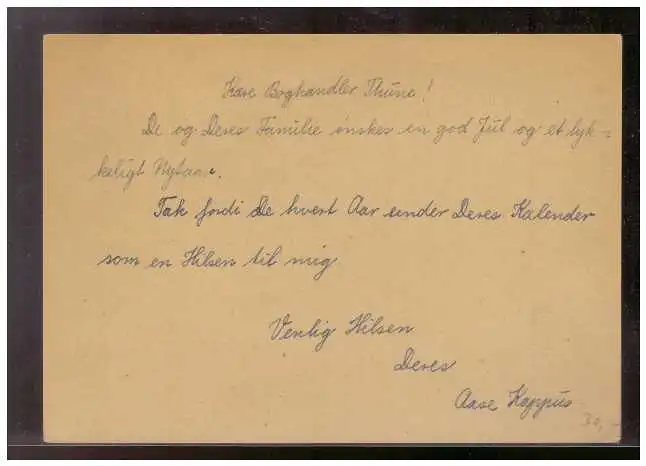 Kære Boghandler Thune!
De og Deres Familie ønskes en god Jul og et lyk=
keligt Nytaar.
Tak fordi De hvert Aar sender Deres Kalender
som en Hilsen til mig
Venlig Hilsen
Deres
Aase Kappus
30,-